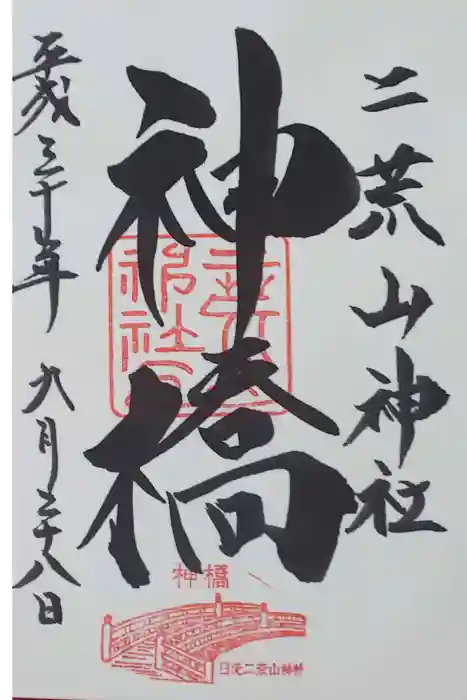 二荒山神社
神橋
平成三十年 九月二十八日
神橋
日光二荒山神社